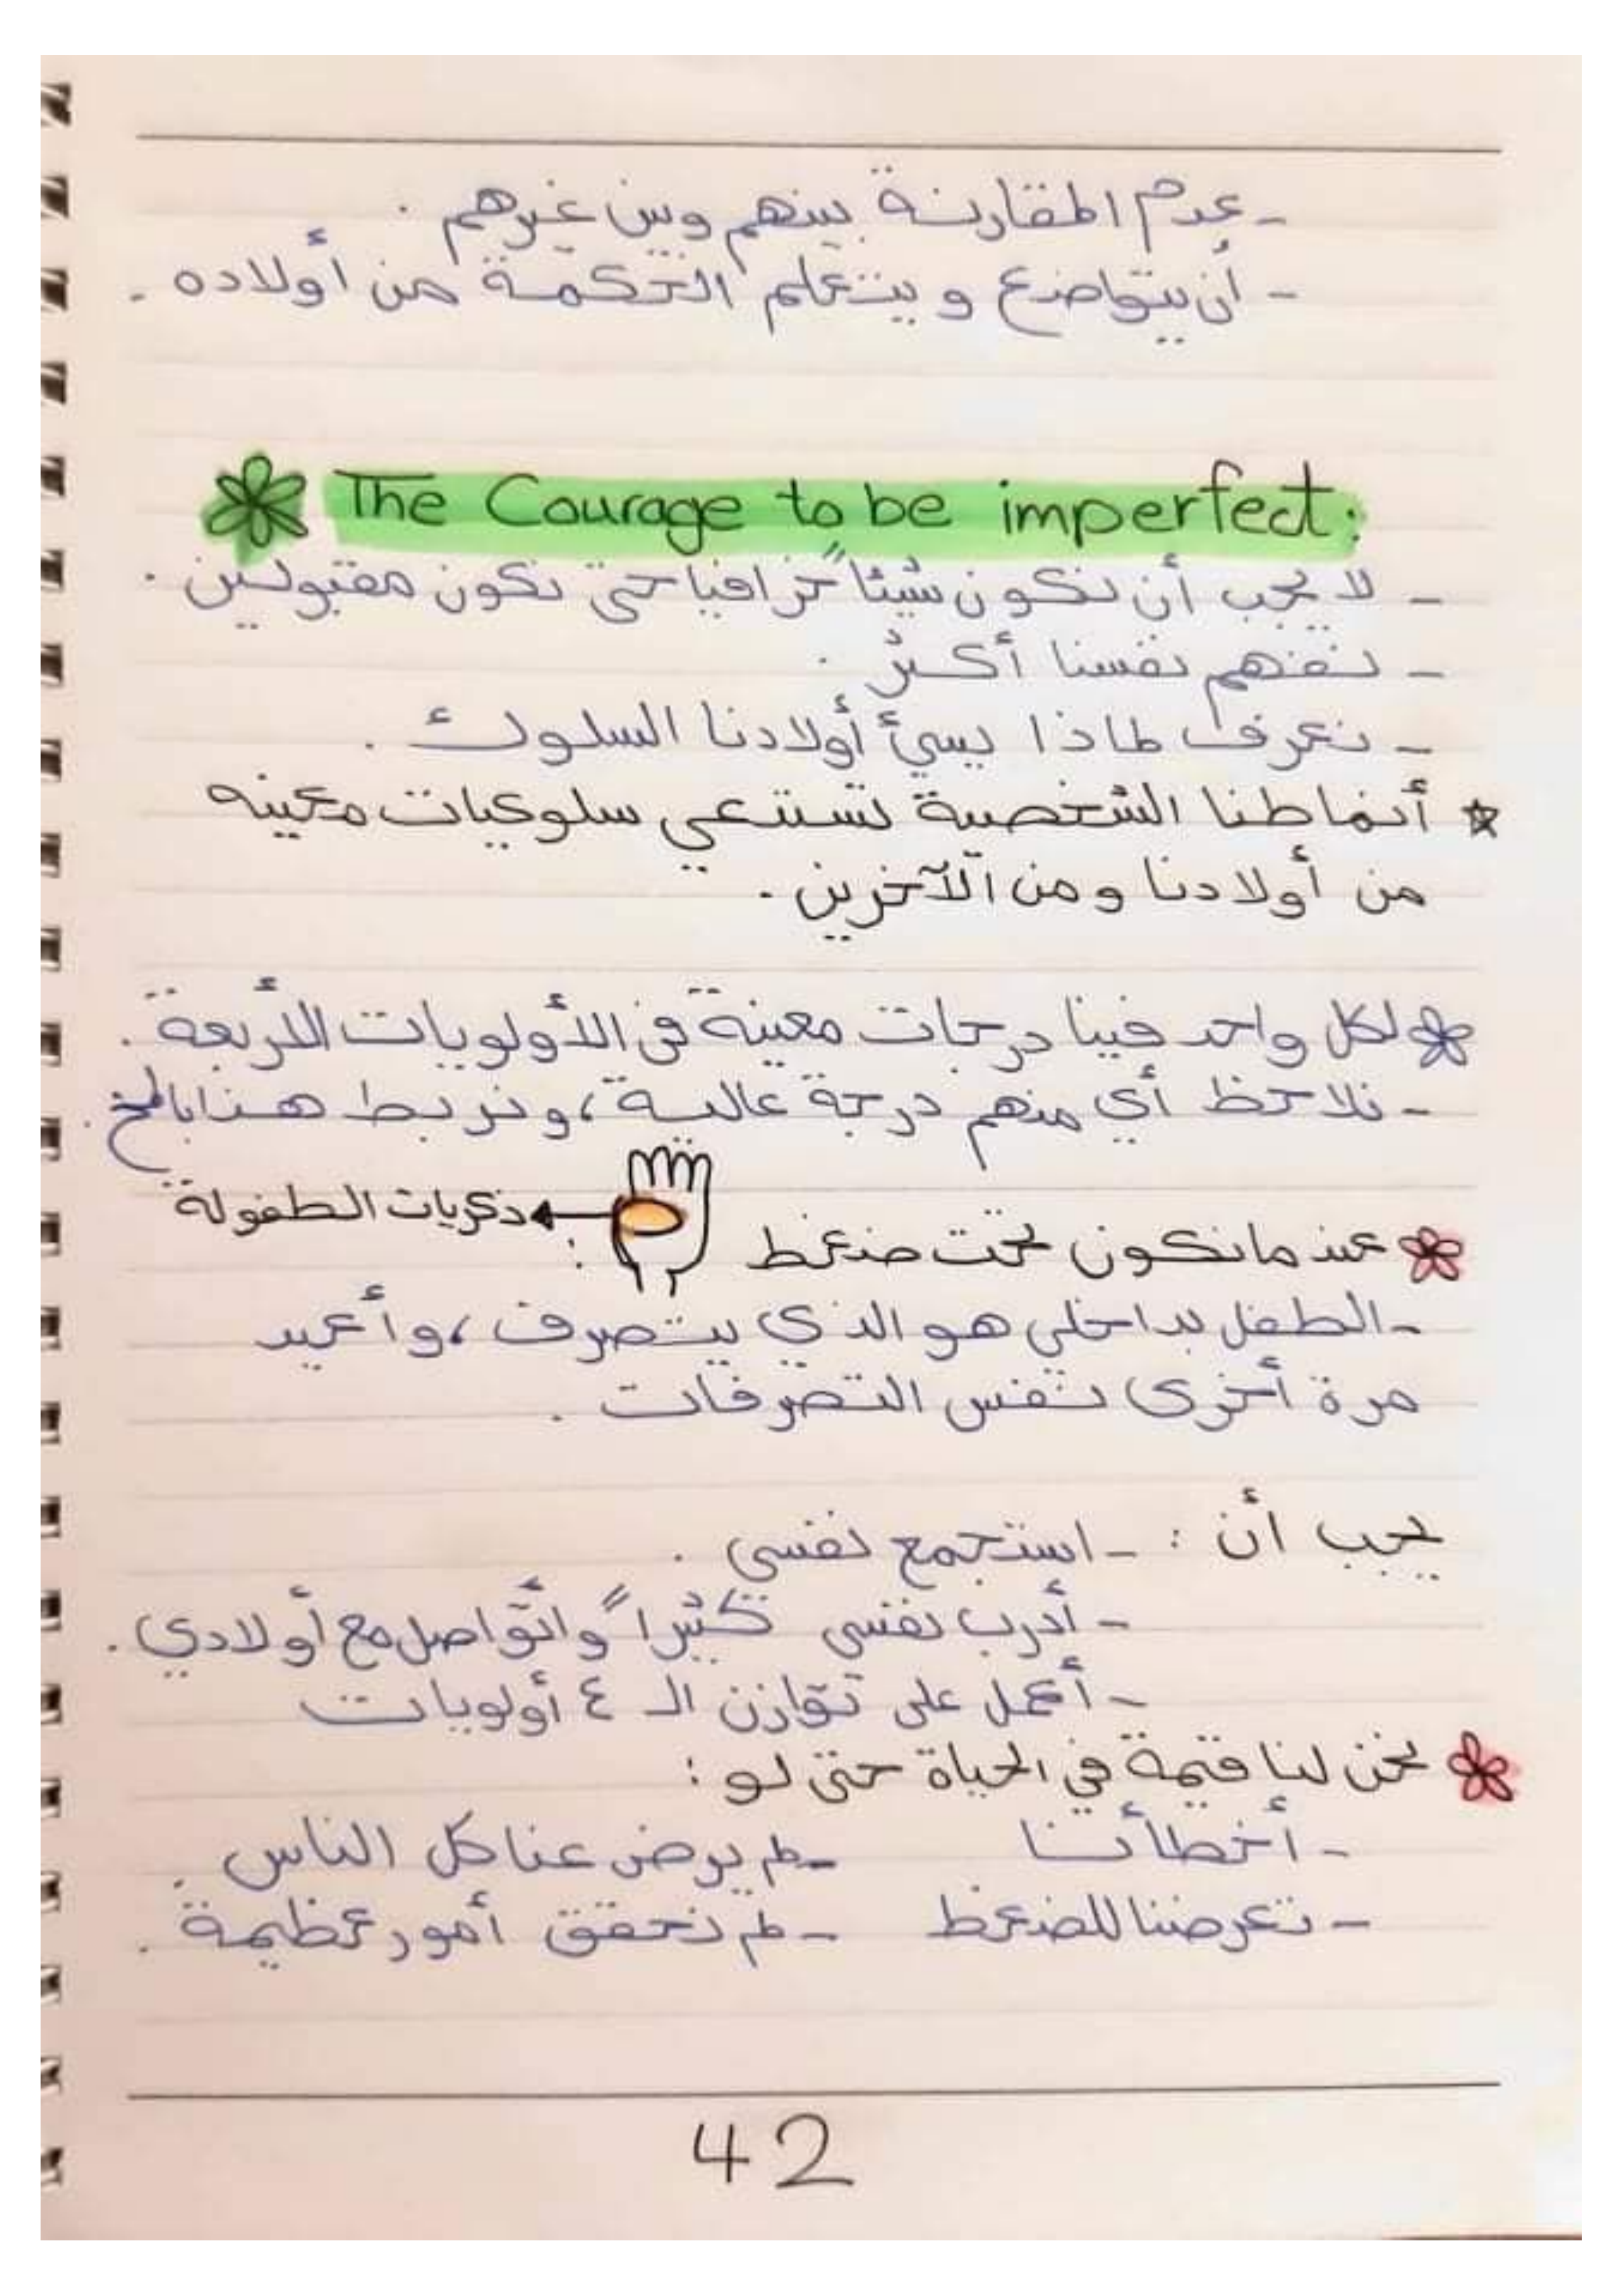 - عدم المقارنة بينهم وبين غيرهم .
- أن يتواضع و يتعلم الحكمة من أولاده .
The Courage to be imperfect:
- لا يجب أن نكون شيئاً خرافيا حتى نكون مقبولين .
- نفهم نفسنا أكثر .
- نعرف لماذا يسيئ أولادنا السلوك .
* أنماطنا الشخصية تستدعي سلوكيات معينه
من أولادنا و من الآخرين .
لكل واحد فينا درجات معينة في الأولويات الأربعة .
- نلاحظ أي منهم درجة عالية ، ونربط هذا بالمخ .
ذكريات الطفولة
عندما نكون تحت ضغط :
- الطفل بداخلي هو الذي يتصرف ، وأعيد
مرة أخرى نفس التصرفات .
يجب أن : - استجمع نفسي .
- أدرب نفسي كثيراً وأتواصل مع أولادي .
- أعمل على توازن الـ ٤ أولويات
نحن لنا قيمة في الحياة حتى لو :
- أخطأنا - لم يرض عنا كل الناس .
- تعرضنا للضغط - لم نحقق أمور عظيمة .
42